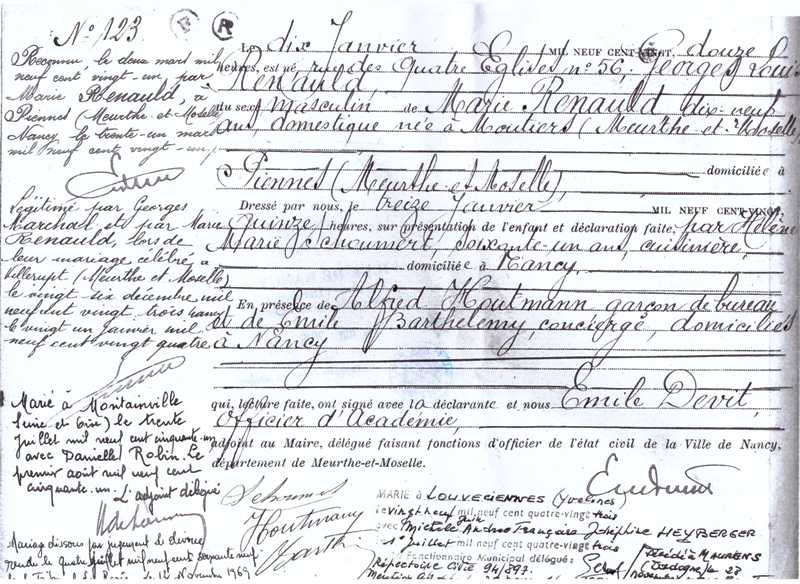 N° 123
E R
Reconnu, le deux mars mil
neuf cent vingt-un par
Marie Renauld, à
Piennes (Meurthe et Moselle)
Nancy, le trente-un mars
mil neuf cent vingt-un
Légitimé par Georges
Marchal et par Marie
Renauld, lors de
leur mariage célébré à
Villerupt (Meurthe et Moselle)
le vingt six décembre mil
neuf cent vingt trois Nancy
le vingt un Janvier mil
neuf cent vingt quatre
Marié à Montainville
(Seine et Oise) le trente
juillet mil neuf cent cinquante-un
avec Danielle Robin. Le
premier août mil neuf cent
cinquante-un. L'adjoint délégué
Mariage dissous par jugement de divorce
rendu le quatre juillet mil neuf cent soixante neuf
Novembre 1969
Le dix Janvier MIL NEUF CENT VINGT, douze
heures, est né, rue des Quatre Eglises n° 56, Georges Louis
Renauld,
du sexe masculin de Marie Renauld dix-neuf
ans, domestique née à Moutiers (Meurthe-et-Moselle),
domiciliée à
Piennes (Meurthe et Moselle),
Dressé par nous, le treize Janvier MIL NEUF CENT VINGT,
quinze heures, sur présentation de l'enfant et déclaration faite, par Hélène
Marie Schoumert, soixante-un ans, cuisinière,
domiciliée à Nancy,
En présence de Alfred Houtmann garçon de bureau
et de Emile Barthélemy, concierge, domiciliés
à Nancy
qui, lecture faite, ont signé avec la déclarante et nous Emile Devit,
Officier d'Académie,
adjoint au Maire, délégué faisant fonctions d'officier de l'état civil de la Ville de Nancy,
département de Meurthe-et-Moselle.
Houtmann
MARIÉ à LOUVECIENNES (Yvelines)
le vingt neuf Juin mil neuf cent quatre-vingt trois
avec Michèle Andrée Françoise Joséphine HEYBERGER
1er juillet mil neuf cent quatre-vingt trois
Le Fonctionnaire Municipal délégué:
Répertoire Civil 94/897.
Décédé à MAURENS
(Dordogne) le 23
novembre